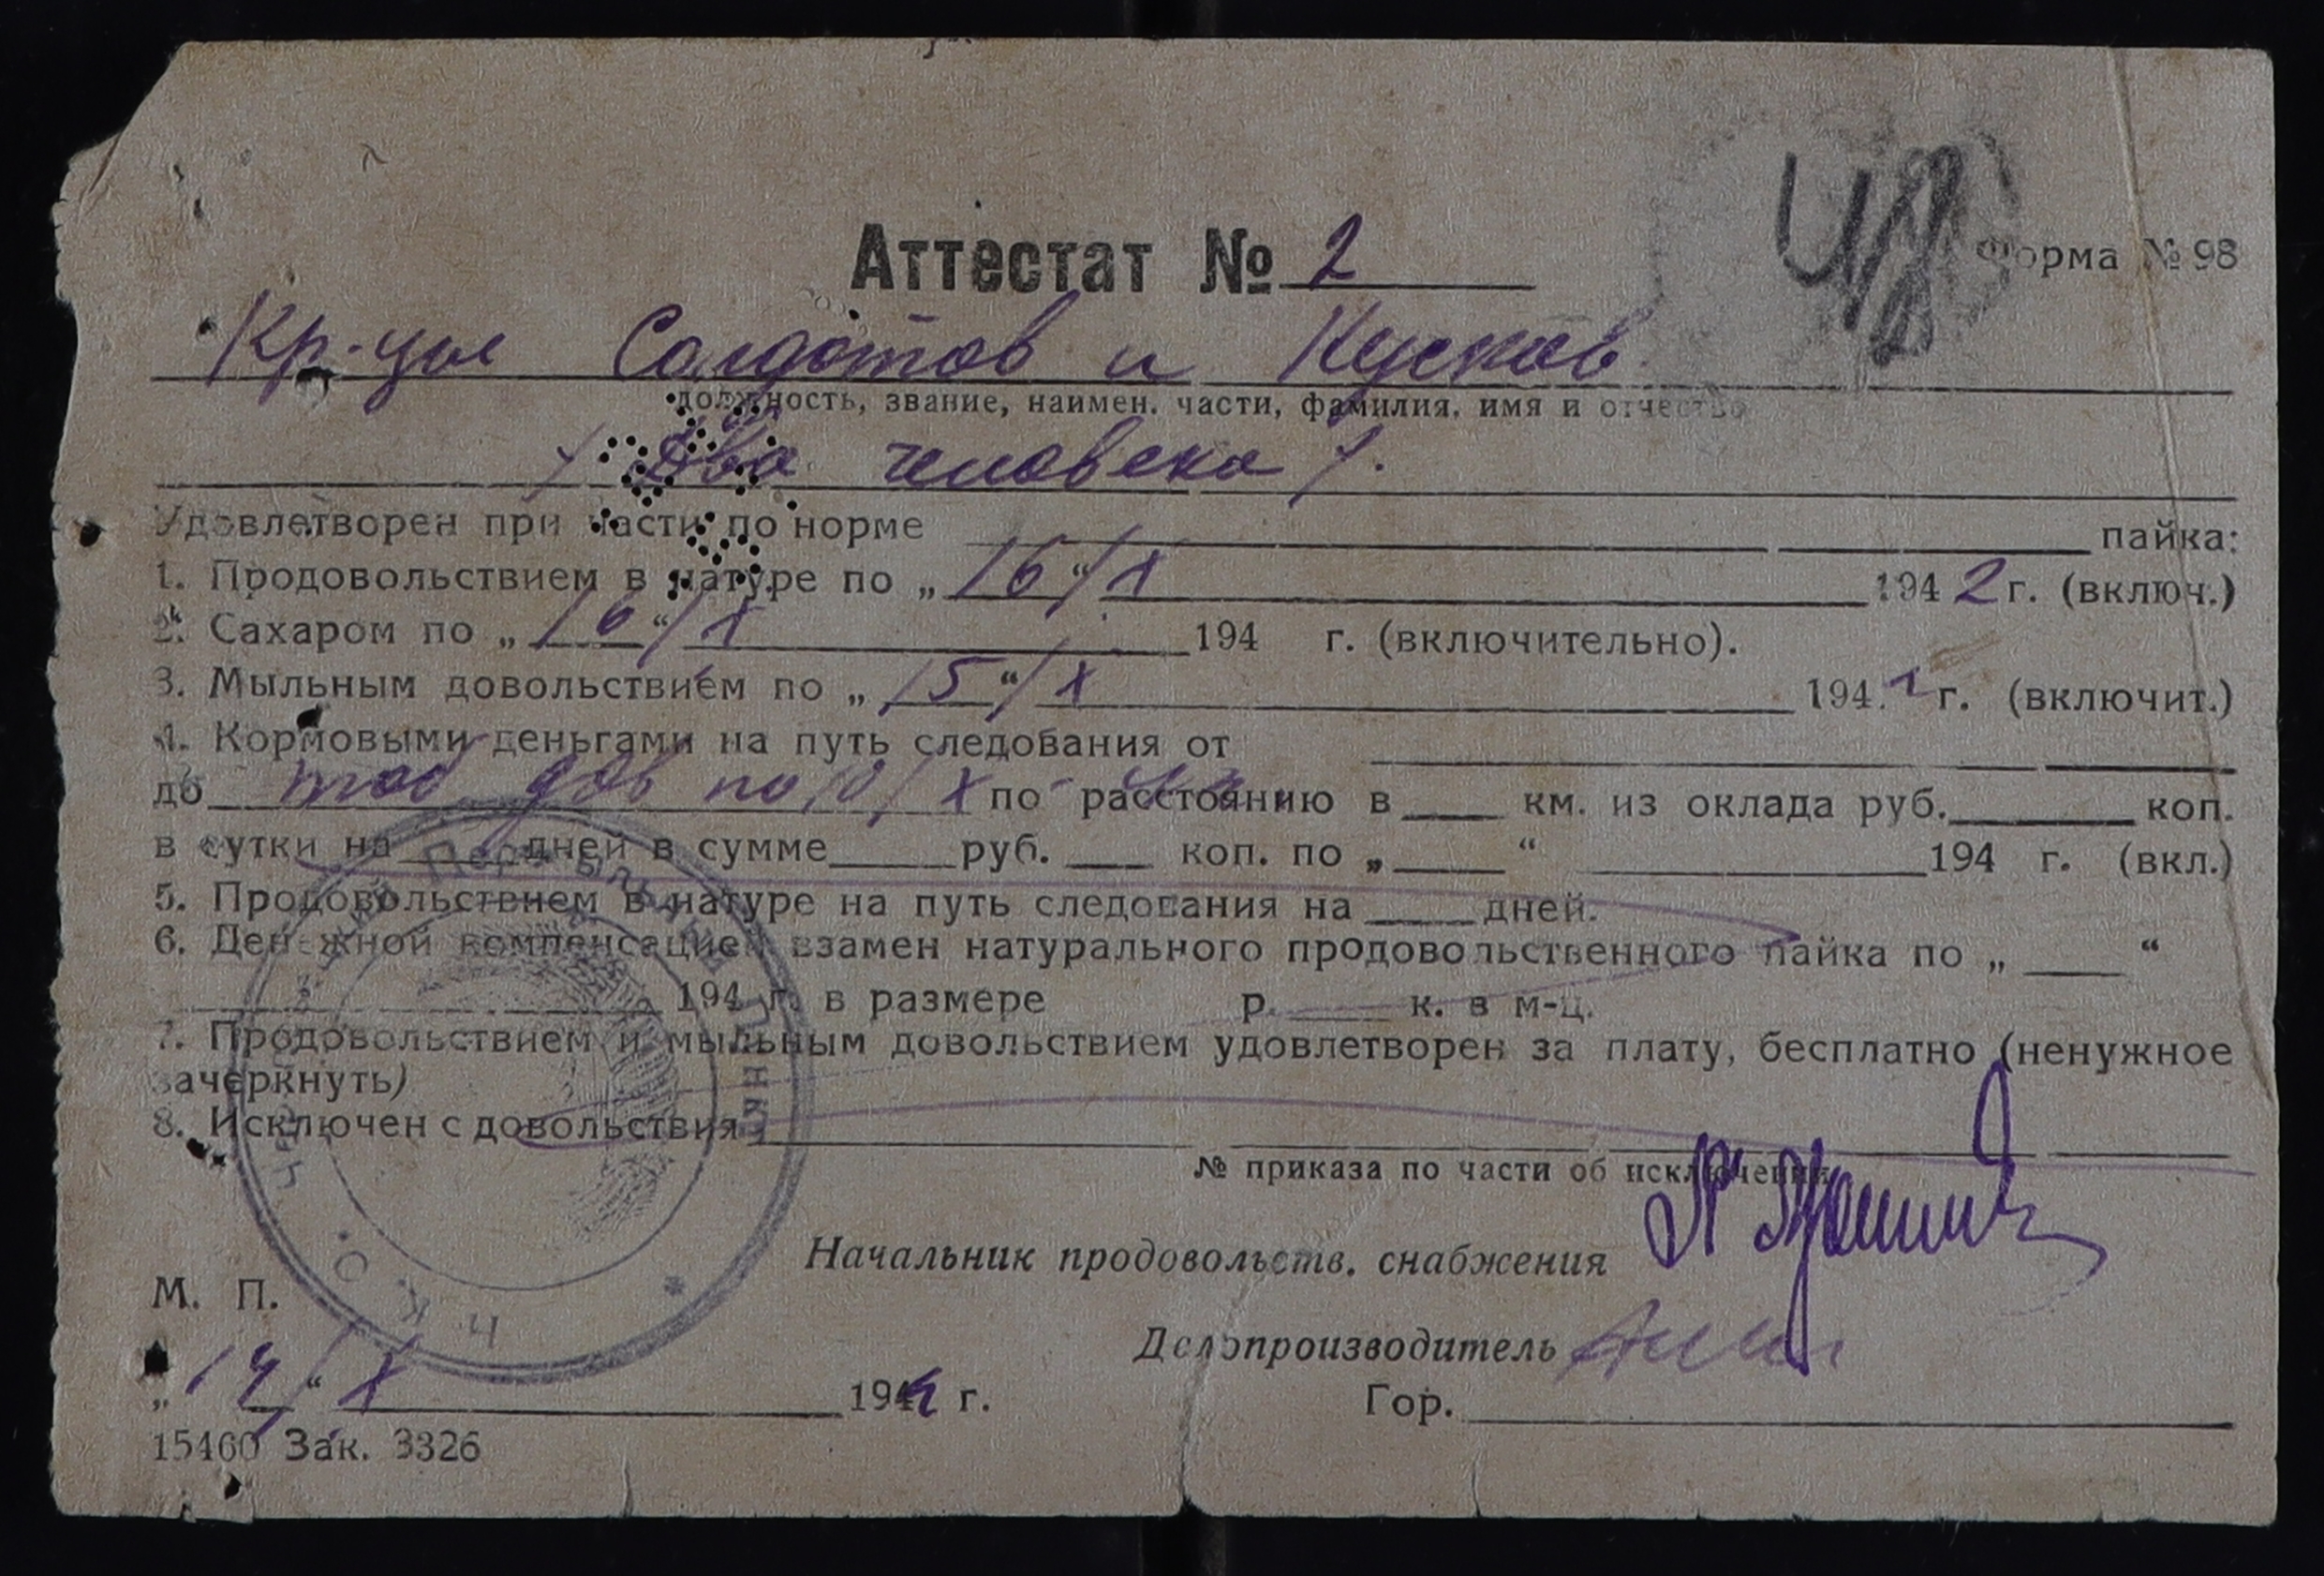 Аттестат № 2
Форма № 98
Кр-цы Солдатов и Кусков
должность, звание, наимен. части, фамилия, имя и отчество
/ Два человека /.
Удовлетворен при части по норме пайка:
1. Продовольствием в натуре по „ 16 “ / X 194 2 г. (включ.)
2. Сахаром по „ 16 “ / X 194 г. (включительно).
3. Мыльным довольствием по „ 15 “ / X 194 г. (включит.)
4. Кормовыми деньгами на путь следования от
до таб дов по 10 / X по расстоянию в км. из оклада руб. коп.
в сутки на дней в сумме руб. коп. по „ “ 194 г. (вкл.)
5. Продовольствием в натуре на путь следования на дней.
6. Денежной компенсацией взамен натурального продовольственного пайка по „ “
194 г. в размере р. к. в м-ц.
7. Продовольствием и мыльным довольствием удовлетворен за плату, бесплатно (ненужное
зачеркнуть)
8. Исключен с довольствия
№ приказа по части об исключении
Начальник продовольств. снабжения
М. П.
Делопроизводитель
„ 14 “ / X 194 г.
Гор.
15460 Зак. 3326
Н К О